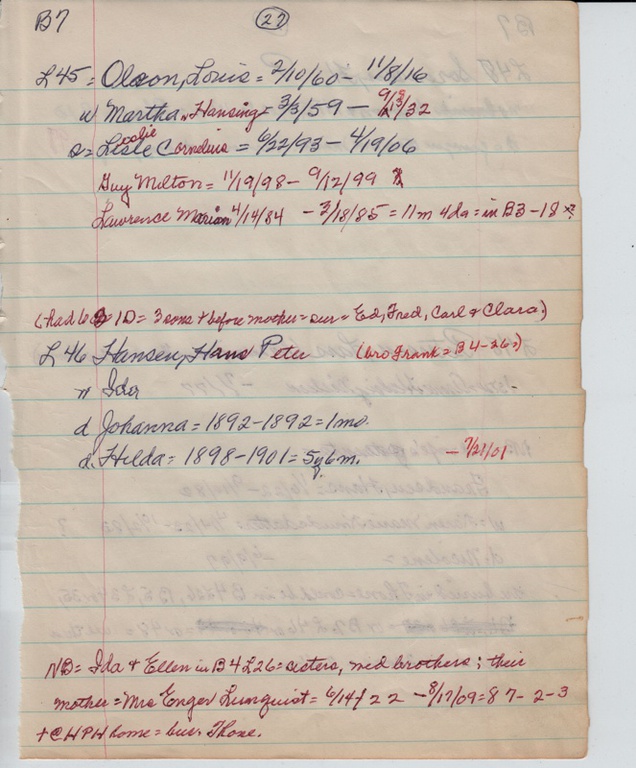 B7 (27)
L45 = Olson, Louis = 2/10/60 - 11/8/16
w Martha Hansing = 3/3/59 - 9/ /32
s = Leslie Cornelius = 6/22/93 - 4/19/06
Guy Milton = 11/19/98 - 9/12/99
Lawrence Marian 4/14/84 - 3/18/85 = 11m 4da = in B3-18 x?
(had 6 1D = 3 sons + before mother = sur = Ed, Fred, Carl & Clara.)
L46 Hansen, Hans Peter (bro Frank = B4-26=)
w Ida
d Johanna = 1892-1892 = 1mo.
d. Hilda = 1898-1901 = 5y6m. - 7/21/01
NB = Ida & Ellen in B4L26 = sisters, med brothers; their
mother = Mrs Enger Lunquist = 6/14/22 - 8/17/09 = 87-2-3
+ @ HPH home = bur. Thone.